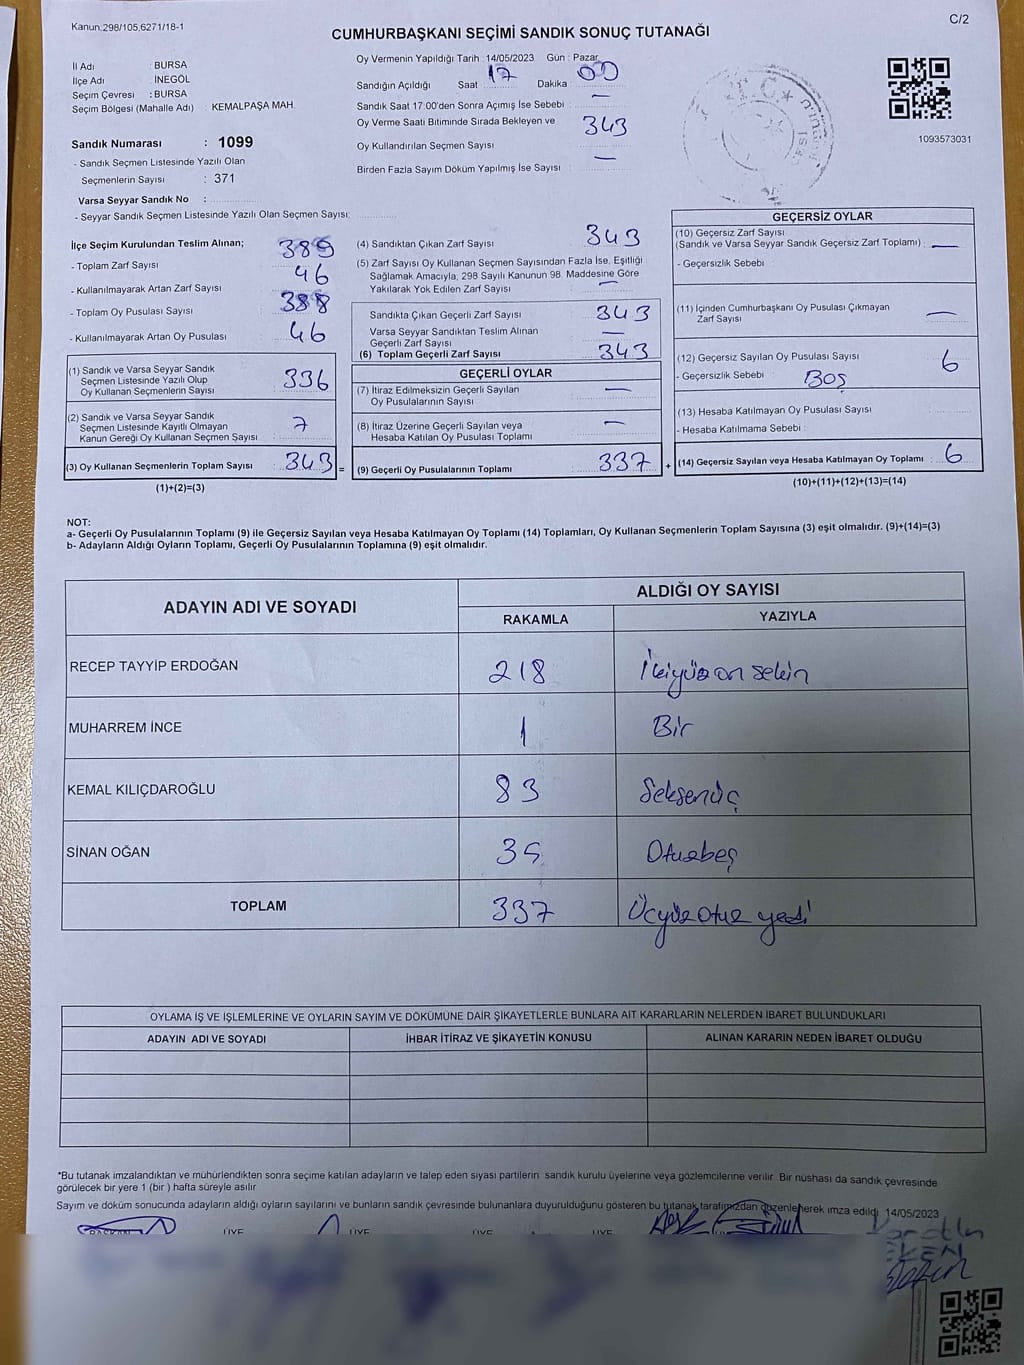 Kanun:298/105,6271/18-1
C/2
CUMHURBAŞKANI SEÇİMİ SANDIK SONUÇ TUTANAĞI
İl Adı : BURSA
İlçe Adı : İNEGÖL
Seçim Çevresi : BURSA
Seçim Bölgesi (Mahalle Adı) : KEMALPAŞA MAH.
Sandık Numarası : 1099
- Sandık Seçmen Listesinde Yazılı Olan
Seçmenlerin Sayısı : 371
Varsa Seyyar Sandık No :
- Seyyar Sandık Seçmen Listesinde Yazılı Olan Seçmen Sayısı:
Oy Vermenin Yapıldığı Tarih :14/05/2023 Gün : Pazar
Sandığın Açıldığı Saat 17 Dakika 00
Sandık Saat 17:00'den Sonra Açımış İse Sebebi : —
Oy Verme Saati Bitiminde Sırada Bekleyen ve
Oy Kullandırılan Seçmen Sayısı 343
Birden Fazla Sayım Döküm Yapılmış İse Sayısı : —
1093573031
İlçe Seçim Kurulundan Teslim Alınan;
- Toplam Zarf Sayısı 389
- Kullanılmayarak Artan Zarf Sayısı 46
- Toplam Oy Pusulası Sayısı 388
- Kullanılmayarak Artan Oy Pusulası 46
(1) Sandık ve Varsa Seyyar Sandık
Seçmen Listesinde Yazılı Olup
Oy Kullanan Seçmenlerin Sayısı 336
(2) Sandık ve Varsa Seyyar Sandık
Seçmen Listesinde Kayıtlı Olmayan
Kanun Gereği Oy Kullanan Seçmen Sayısı 7
(3) Oy Kullanan Seçmenlerin Toplam Sayısı 343 =
(1)+(2)=(3)
(4) Sandıktan Çıkan Zarf Sayısı 343
(5) Zarf Sayısı Oy Kullanan Seçmen Sayısından Fazla İse, Eşitliği
Sağlamak Amacıyla, 298 Sayılı Kanunun 98. Maddesine Göre
Yakılarak Yok Edilen Zarf Sayısı —
Sandıkta Çıkan Geçerli Zarf Sayısı 343
Varsa Seyyar Sandıktan Teslim Alınan
Geçerli Zarf Sayısı —
(6) Toplam Geçerli Zarf Sayısı 343
GEÇERLİ OYLAR
(7) İtiraz Edilmeksizin Geçerli Sayılan
Oy Pusulalarının Sayısı —
(8) İtiraz Üzerine Geçerli Sayılan veya
Hesaba Katılan Oy Pusulası Toplamı —
(9) Geçerli Oy Pusulalarının Toplamı 337 +
GEÇERSİZ OYLAR
(10) Geçersiz Zarf Sayısı
(Sandık ve Varsa Seyyar Sandık Geçersiz Zarf Toplamı) : —
- Geçersizlik Sebebi :
(11) İçinden Cumhurbaşkanı Oy Pusulası Çıkmayan
Zarf Sayısı —
(12) Geçersiz Sayılan Oy Pusulası Sayısı 6
- Geçersizlik Sebebi : BOŞ
(13) Hesaba Katılmayan Oy Pusulası Sayısı
- Hesaba Katılmama Sebebi :
(14) Geçersiz Sayılan veya Hesaba Katılmayan Oy Toplamı : 6
(10)+(11)+(12)+(13)=(14)
NOT:
a- Geçerli Oy Pusulalarının Toplamı (9) ile Geçersiz Sayılan veya Hesaba Katılmayan Oy Toplamı (14) Toplamları, Oy Kullanan Seçmenlerin Toplam Sayısına (3) eşit olmalıdır. (9)+(14)=(3)
b- Adayların Aldığı Oyların Toplamı, Geçerli Oy Pusulalarının Toplamına (9) eşit olmalıdır.
ADAYIN ADI VE SOYADI
ALDIĞI OY SAYISI
RAKAMLA YAZIYLA
RECEP TAYYİP ERDOĞAN 218 İkiyüz on sekin
MUHARREM İNCE 1 Bir
KEMAL KILIÇDAROĞLU 83 Seksenüç
SİNAN OĞAN 35 Otuzbeş
TOPLAM 337 Üçyüz otuz yedi
OYLAMA İŞ VE İŞLEMLERİNE VE OYLARIN SAYIM VE DÖKÜMÜNE DAİR ŞİKAYETLERLE BUNLARA AİT KARARLARIN NELERDEN İBARET BULUNDUKLARI
ADAYIN ADI VE SOYADI İHBAR İTİRAZ VE ŞİKAYETİN KONUSU ALINAN KARARIN NEDEN İBARET OLDUĞU
*Bu tutanak imzalandıktan ve mühürlendikten sonra seçime katılan adayların ve talep eden siyasi partilerin sandık kurulu üyelerine veya gözlemcilerine verilir. Bir nüshası da sandık çevresinde
görülecek bir yere 1 (bir ) hafta süreyle asılır
Sayım ve döküm sonucunda adayların aldığı oyların sayılarını ve bunların sandık çevresinde bulunanlara duyurulduğunu gösteren bu tutanak tarafımızdan düzenlenerek imza edildi. 14/05/2023
BAŞKAN ÜYE ÜYE ÜYE ÜYE